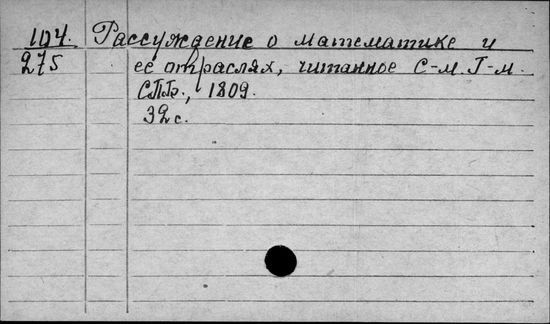 104. Рассуждение о математике и
275 ее отраслях, читанное С-м. Г-м.
СПб., 1809.
32 с.